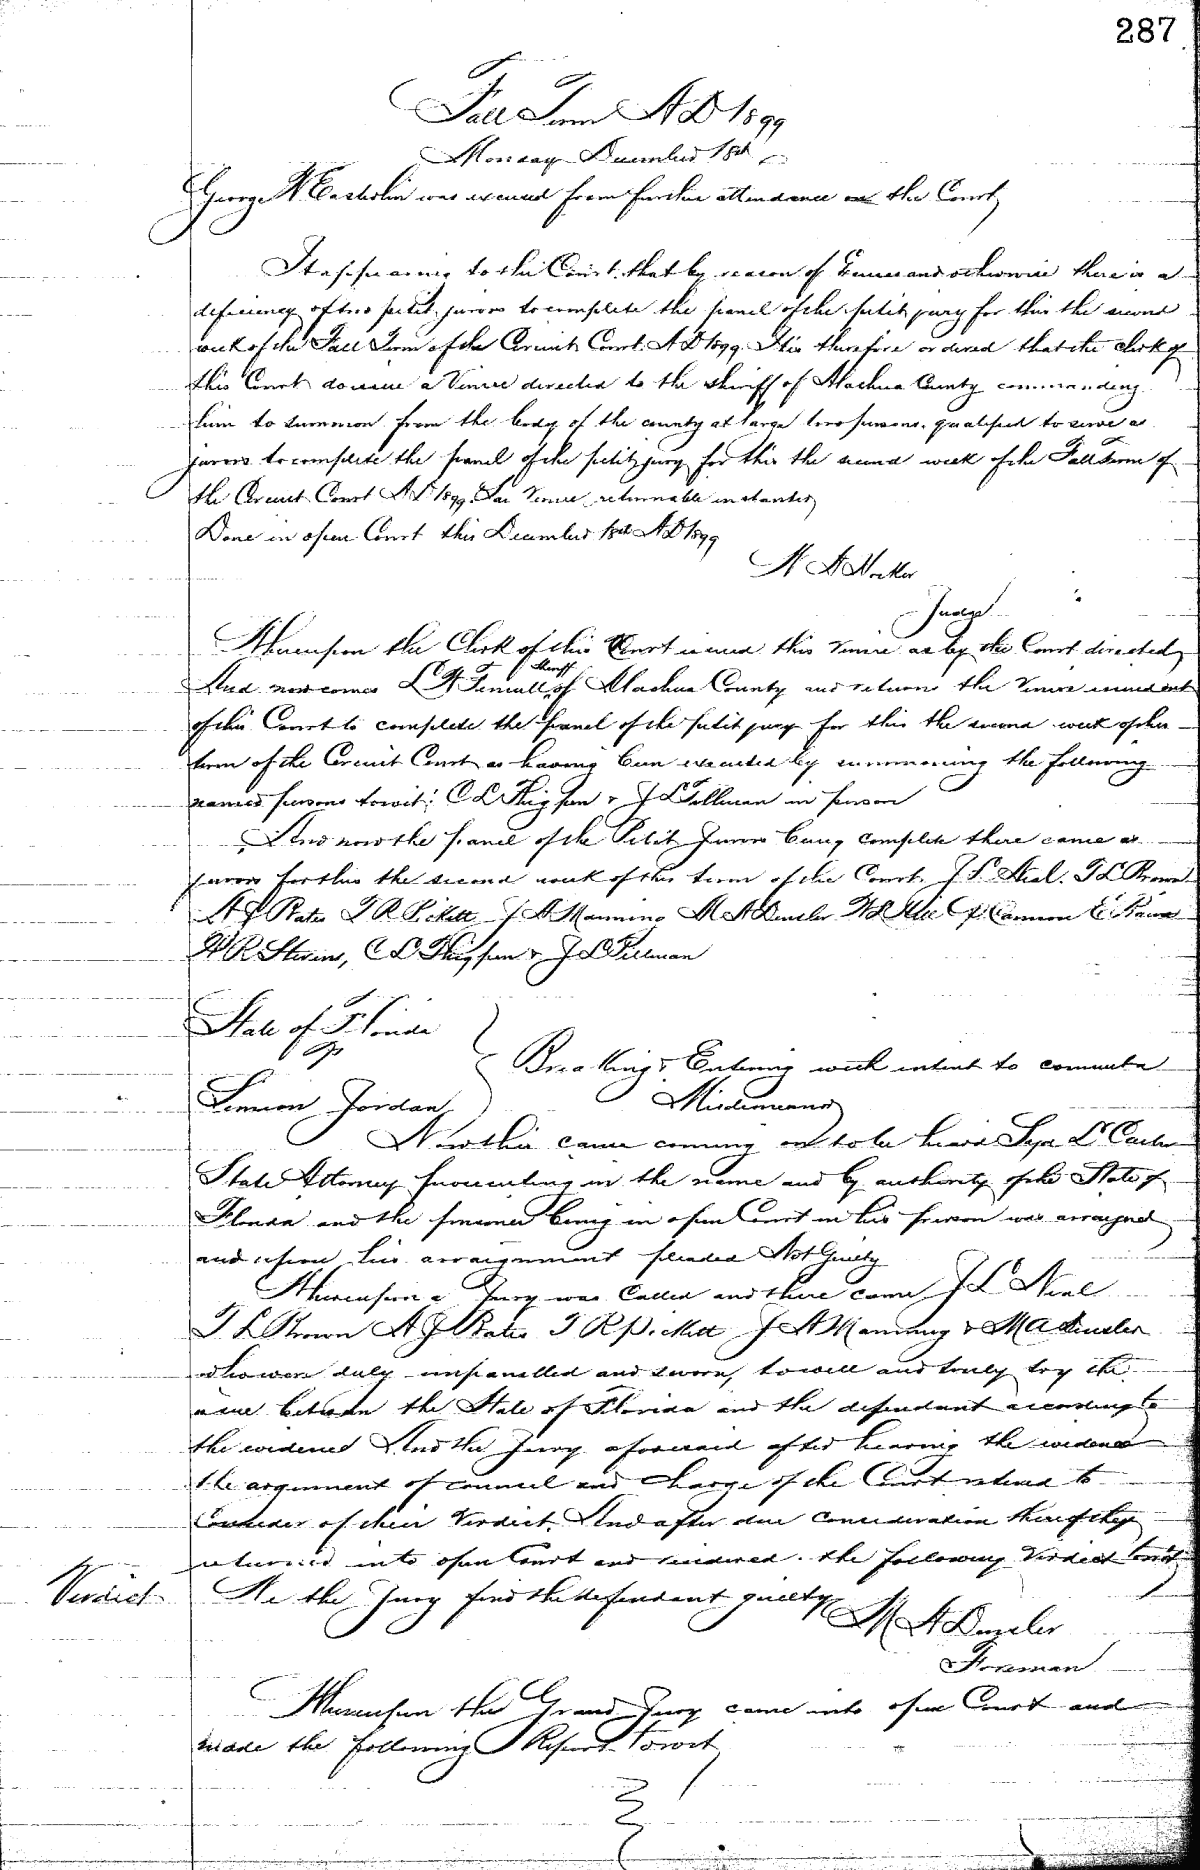 287
Fall Term A D 1899
Monday December 18th
George W was excused from further attendance on the Court
It appearing to the Court that by reason of and otherwise there is a
deficiency of two petit jurors to complete the panel of the petit jury for this the second
week of the Fall Term of the Circuit Court A D 1899. It is therefore ordered that the clerk of
this Court do issue a Venire directed to the Sheriff of Alachua County commanding
him to summon from the body of the county at large two persons, qualified to serve as
jurors to complete the panel of the petit jury for this the second week of the Fall Term of
the Circuit Court A D 1899. Said Venire returnable instanter
Done in open Court this December 18th A D 1899
W A Hocker
Judge
Whereupon the Clerk of this Court issued this Venire as by the Court directed
And now comes L W Fennell, Sheriff of Alachua County and returns the Venire issued out
of this Court to complete the panel of the petit jury for this the second week of the
term of the Circuit Court as having been executed by summoning the following
named persons towit: C L Thigpen & J L Tillman in person
And now the panel of the Petit Jurors being complete there came as
jurors for this the second week of this term of the Court. J L Neal. T L Brown
A J Bates T R Pickett J A Manning M A Dunzler W R C P Cannon E
W R Stevens, C L Thigpen & J L Tillman
State of Florida
vs
Lennion Jordan
Breaking & Entering with intent to commit a
Misdemeanor
Now this cause coming on to be heard Syd L Carter
State Attorney prosecuting in the name and by authority of the State of
Florida and the prisoner being in open Court in his person was arraigned
and upon his arraignment pleaded Not Guilty
Whereupon a Jury was Called and there came J L Neal
T L Brown A J Bates T R Pickett J A Manning & M A Dunzler
who were duly impanelled and sworn, to well and truly try the
issue between the State of Florida and the defendant according to
the evidence And the Jury aforesaid after hearing the evidence
the argument of counsel and Charge of the Court retired to
Consider of their Verdict. And after due consideration thereof they
returned into open Court and rendered the following Verdict towit
Verdict We the Jury find the defendant guilty
M A Dunzler
Foreman
Whereupon the Grand Jury came into open Court and
made the following Report Towit